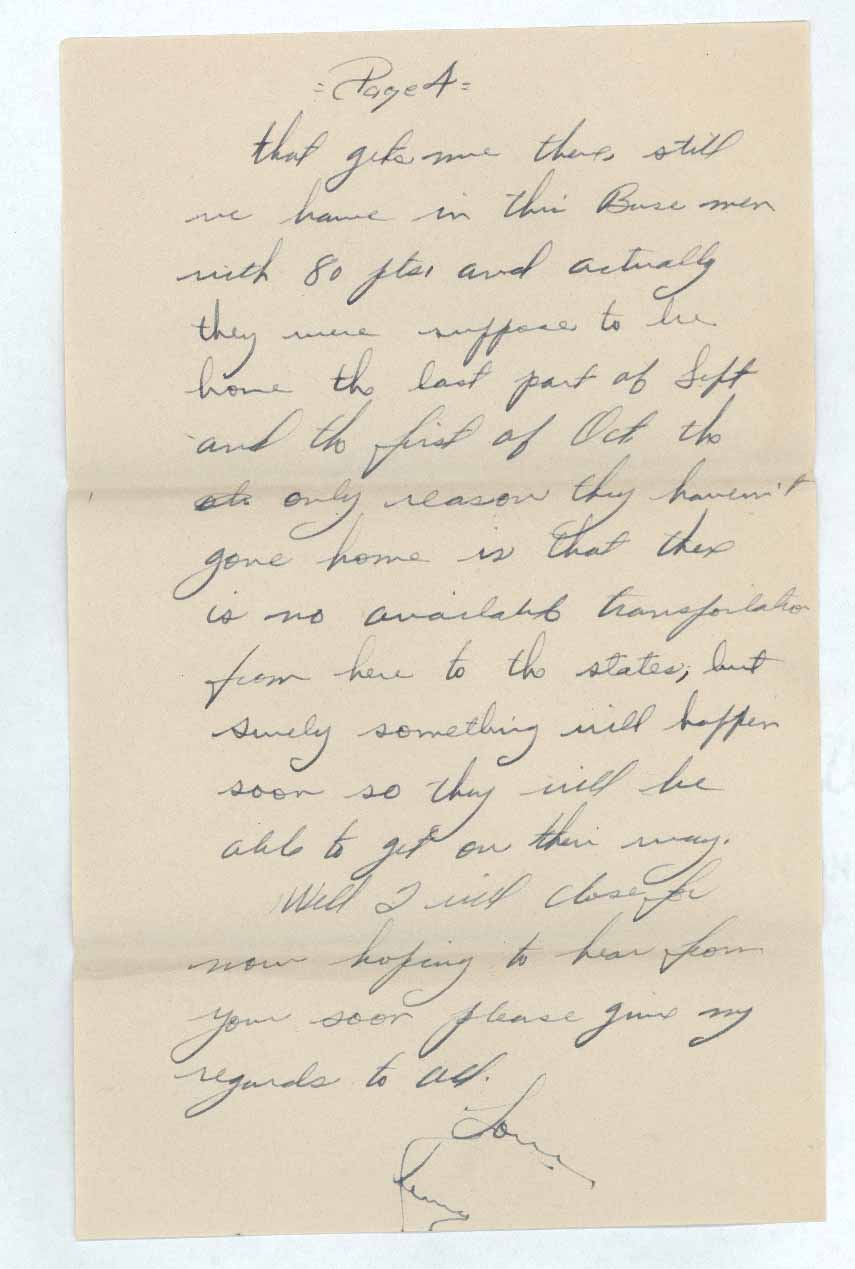 =Page 4=
that gets me there, still
we have in this Base men
with 80 pts, and actually
they were suppose to be
home the last part of Sept
and the first of Oct the
only reason they haven't
gone home is that there
is no available transportation
from here to the states, but
surely something will happen
soon so they will be
able to get on their way.
Well I will close for
now hoping to hear from
your soon please give my
regards to all.
Love